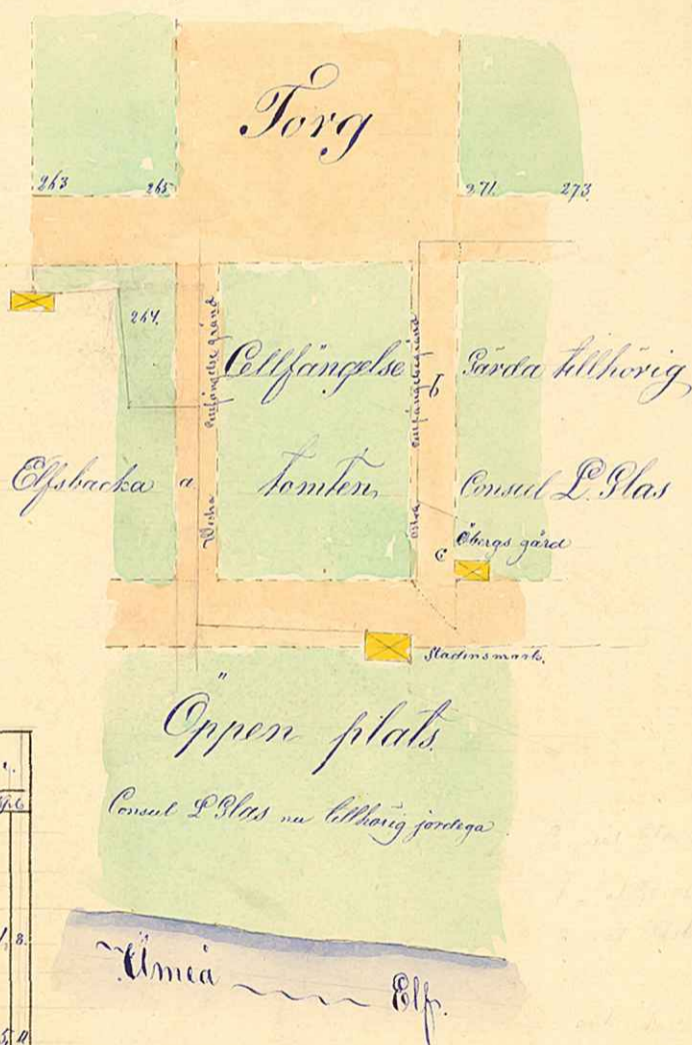 Torg
263 265 271. 273.
267.
Cellfängelse
tomten
Westra Cellfängelse gränd
Östra Cellfängelsegränd
b
Gärda tillhörig
Consul L. Glas
Elfsbacka a
c Öbergs gård
Stadens mark.
Öppen plats.
Consul L Glas nu tillhörig jordega
Umeå Elf.